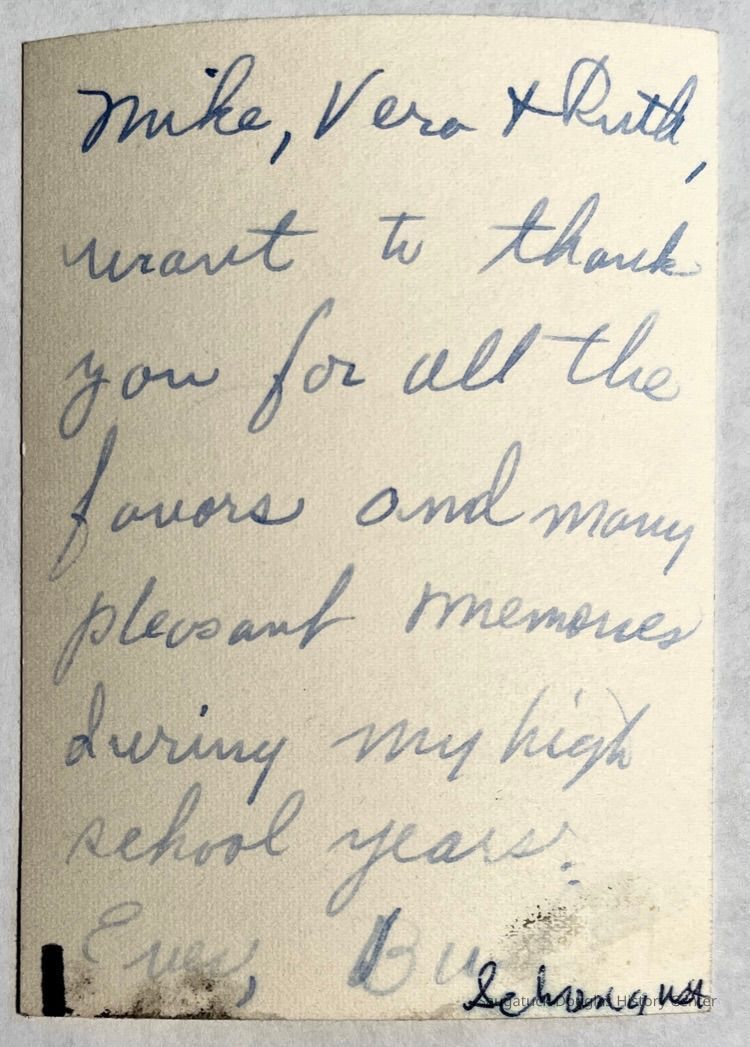 Mike, Vera & Ruth,
want to thank
you for all the
favors and many
pleasant memories
during my high
school years.
Ever,
Saugatuck-Douglas History Center